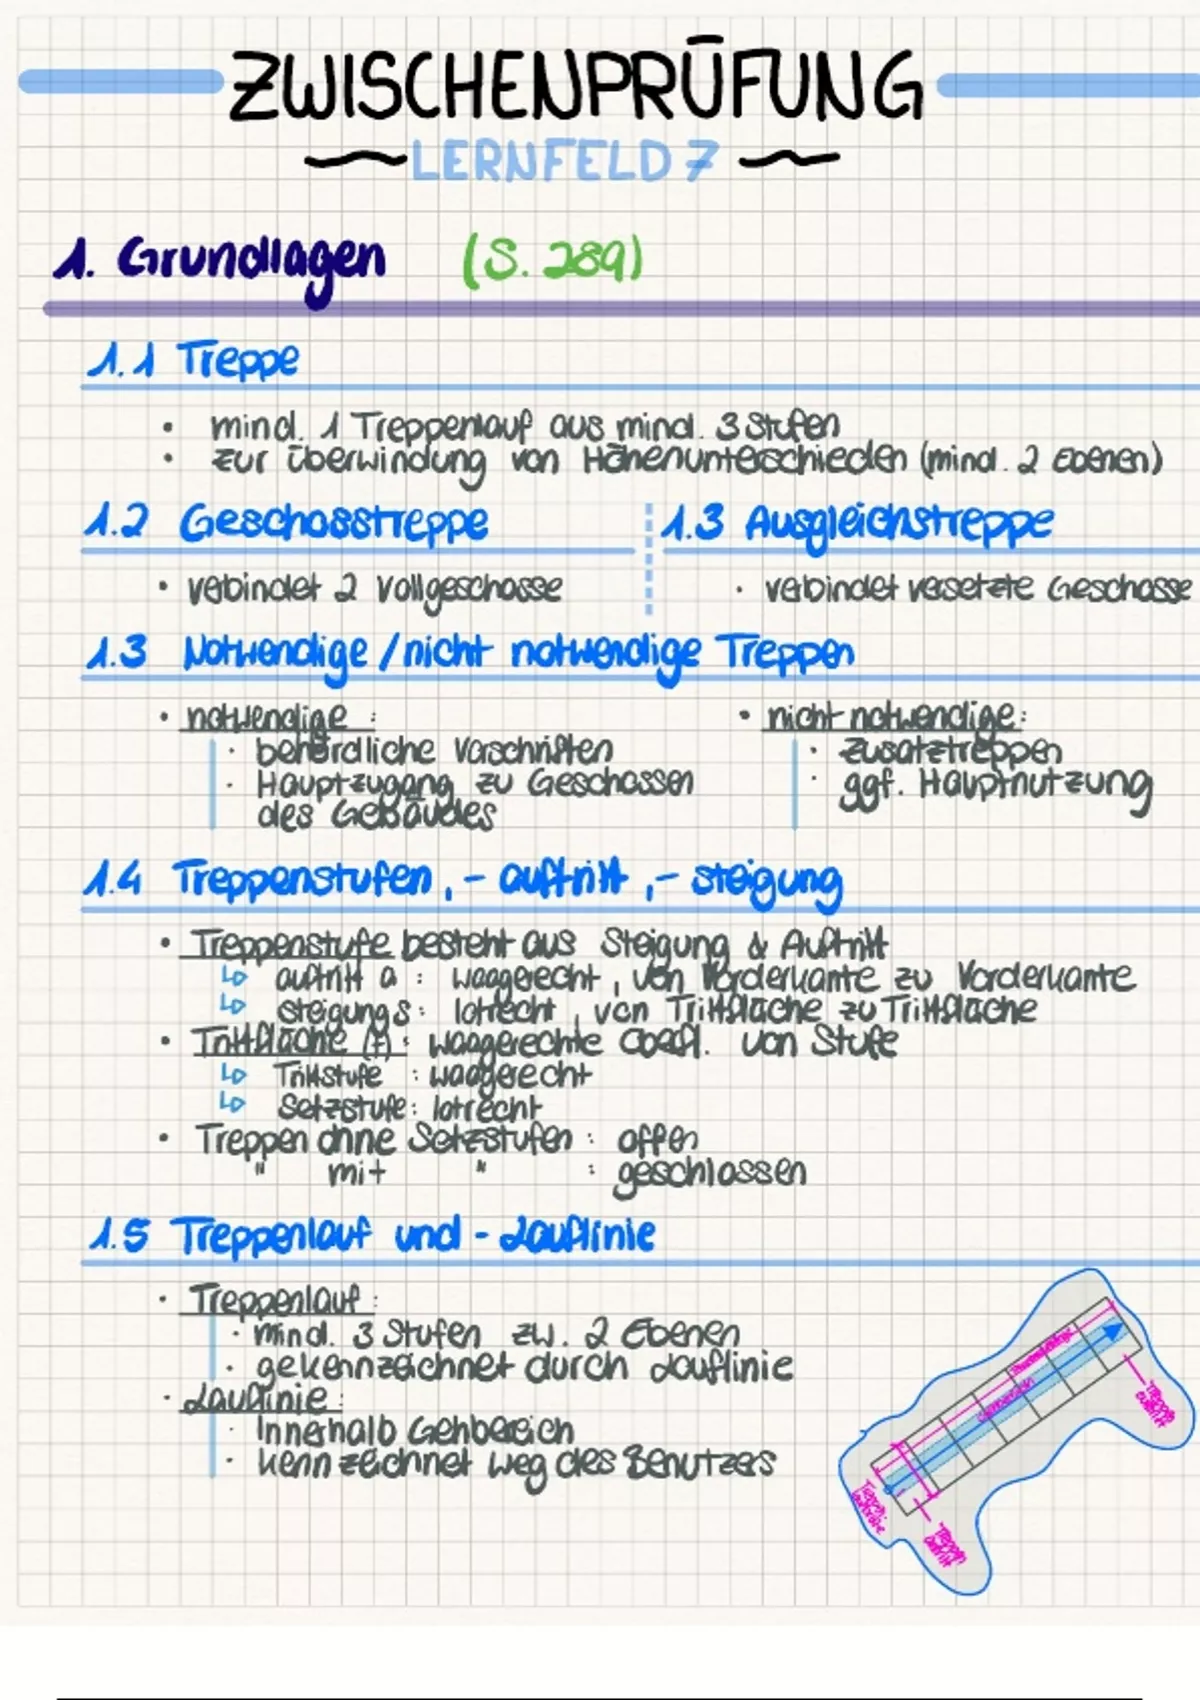 ZWISCHENPRÜFUNG
LERNFELD 7
1. Grundlagen (S. 289)
1.1 Treppe
• mind. 1 Treppenlauf aus mind. 3 Stufen
• zur Überwindung von Höhenunterschieden (mind. 2 Ebenen)
1.2 Geschosstreppe
• verbindet 2 Vollgeschosse
1.3 Ausgleichstreppe
• verbindet versetzte Geschosse
1.3 Notwendige / nicht notwendige Treppen
• notwendige :
· behördliche Vorschriften
· Hauptzugang zu Geschossen
des Gebäudes
• nicht notwendige:
· Zusatztreppen
· ggf. Hauptnutzung
1.4 Treppenstufen, - auftritt, - steigung
• Treppenstufe besteht aus Steigung & Auftritt
↳ auftritt a : waagerecht, von Vorderkante zu Vorderkante
↳ steigung s: lotrecht, von Trittfläche zu Trittfläche
• Trittfläche (F): waagerechte Oberfl. von Stufe
↳ Trittstufe : waagerecht
↳ Setzstufe: lotrecht
• Treppen ohne Setzstufen : offen
" mit " : geschlossen
1.5 Treppenlauf und - Lauflinie
• Treppenlauf :
· mind. 3 Stufen zw. 2 Ebenen
· gekennzeichnet durch Lauflinie
• Lauflinie :
· Innerhalb Gehbereich
· kennzeichnet weg des Benutzers